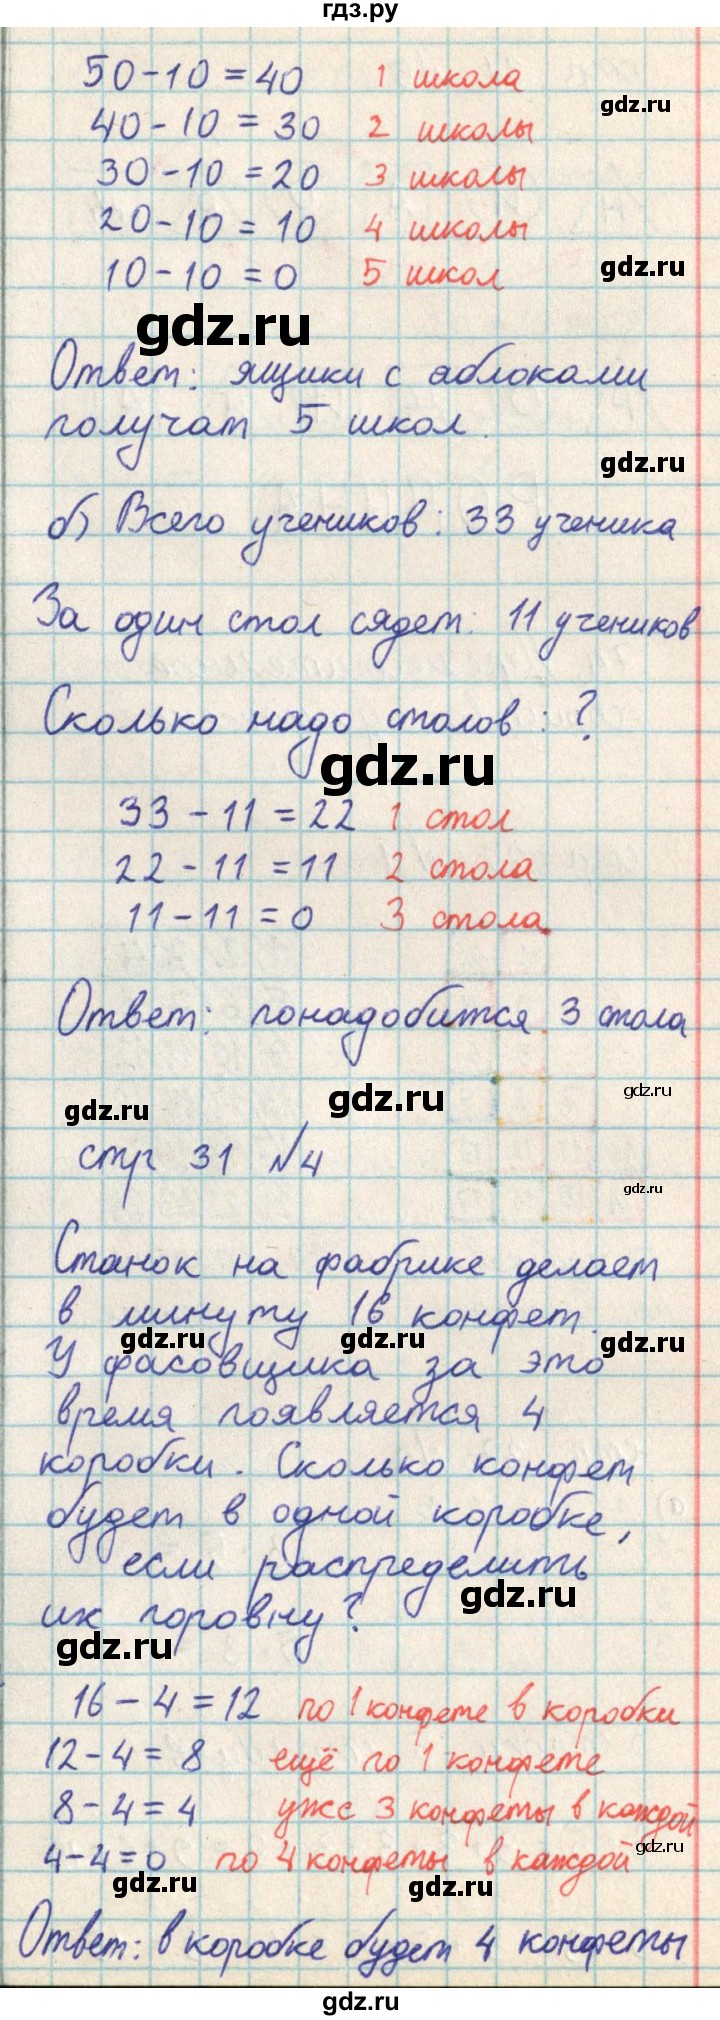 гдз.ру
50-10=40 1 школа
gdz.ru
40-10=30 2 школы
30-10=20 3 школы
20-10=10 4 школы
10-10=0 5 школ
gdz.ru
gdz.ru
Ответ: ящики с яблоками
получат 5 школ.
gdz.ru
б) Всего учеников: 33 ученика
За один стол сядет: 11 учеников
Сколько надо столов: ?
gdz.ru
33-11=22 1 стол
22-11=11 2 стола
11-11=0 3 стола
Ответ: понадобится 3 стола
gdz.ru
gdz.ru
gdz.ru
стр 31 №4
gdz.ru
Станок на фабрике делает
в минуту 16 конфет.
gdz.ru
gdz.ru
gdz.ru
У фасовщика за это
время появляется 4
коробки. Сколько конфет
будет в одной коробке,
если распределить
gdz.ru
их поровну?
gdz.ru
16-4=12 по 1 конфете в коробки
12-4=8 ещё по 1 конфете
8-4=4 уже 3 конфеты в каждой
gdz.ru
4-4=0 по 4 конфеты в каждой
gdz.ru
gdz.ru
Ответ: в коробке будет 4 конфеты
gdz.ru